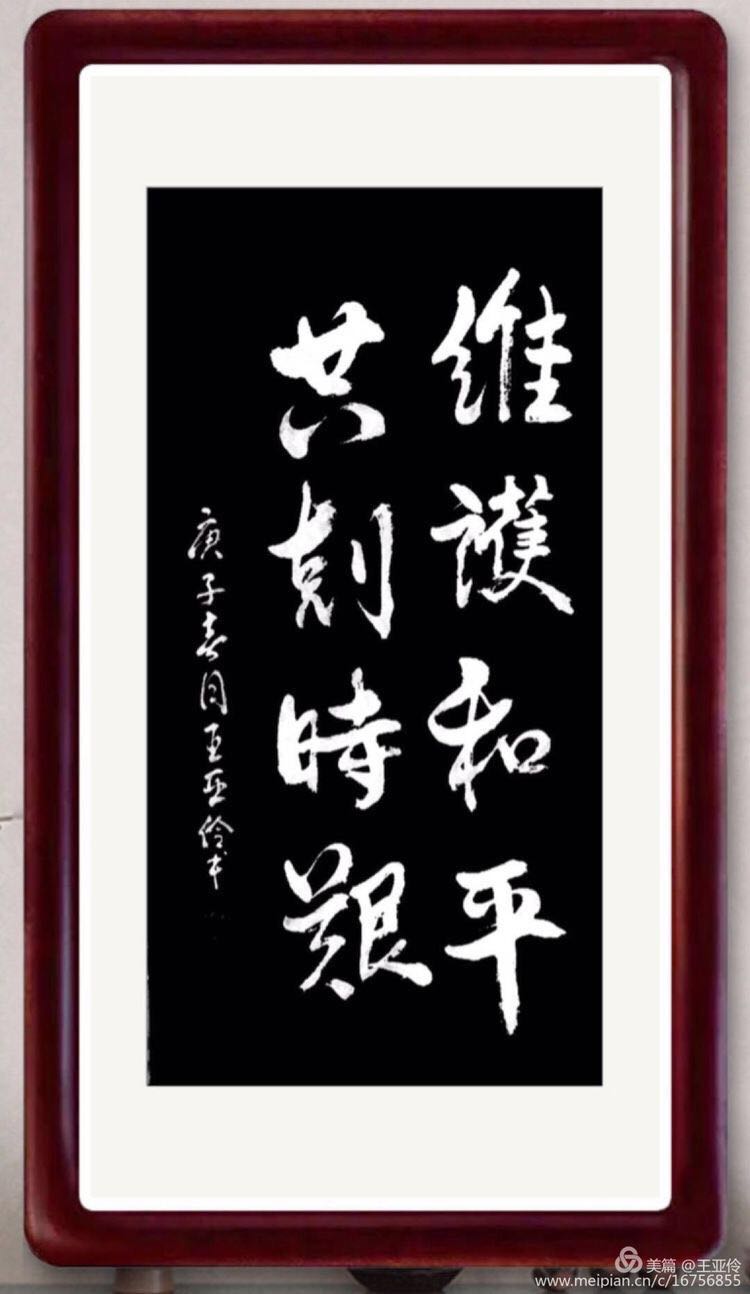 維護和平
共剋時艱
庚子春月王亚伶书
美篇 @王亚伶
www.meipian.cn/c/16756855